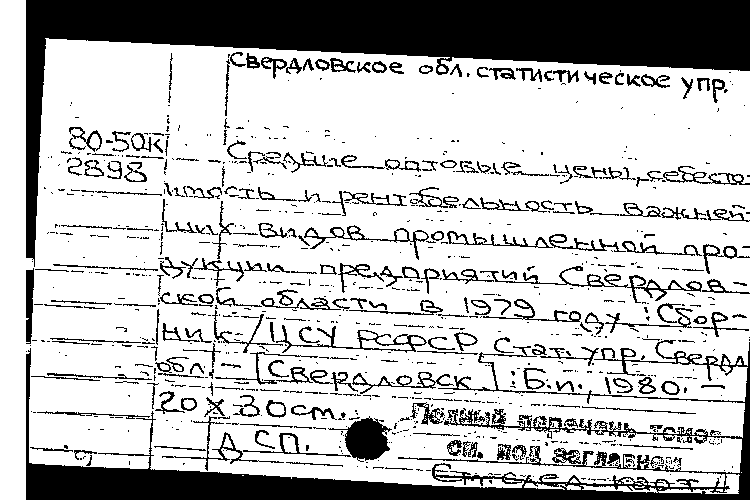 Свердловское обл. статистическое упр.
80-50к
2898
Средние оптовые цены, себесто-
имость и рентабельность важней-
ших видов промышленной про-
дукции предприятий Свердлов-
ской области в 1979 году. : Сбор-
ник / ЦСУ РСФСР, Стат. упр. Свердл.
обл. - [Свердловск.] : Б.и., 1980. -
20 х 30 cm.
ДСП.
Полный перечень томов
см. под заглавием
См. след. карт. 4